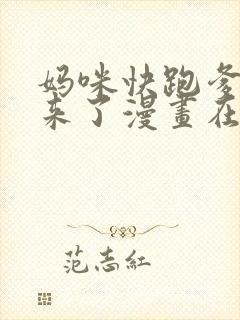 妈咪快跑爹
来了漫畫在
范志紅